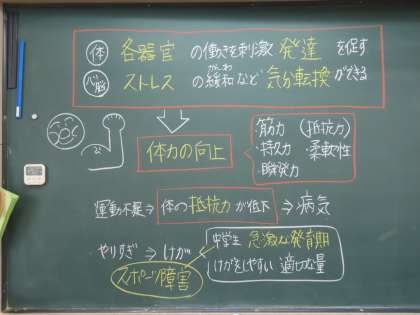 体 各器官 の働きを刺激 発達 を促す
心/脳 ストレス の緩和(かんわ)など 気分転換 ができる
体力の向上
・筋力 (抵抗力)
・持久力 ・柔軟性
・瞬発力
運動不足⇒ 体の抵抗力が低下 ⇒病気
やりすぎ ⇒ けが
スポーツ障害
中学生 急激な発育期
けがをしやすい 適切な量